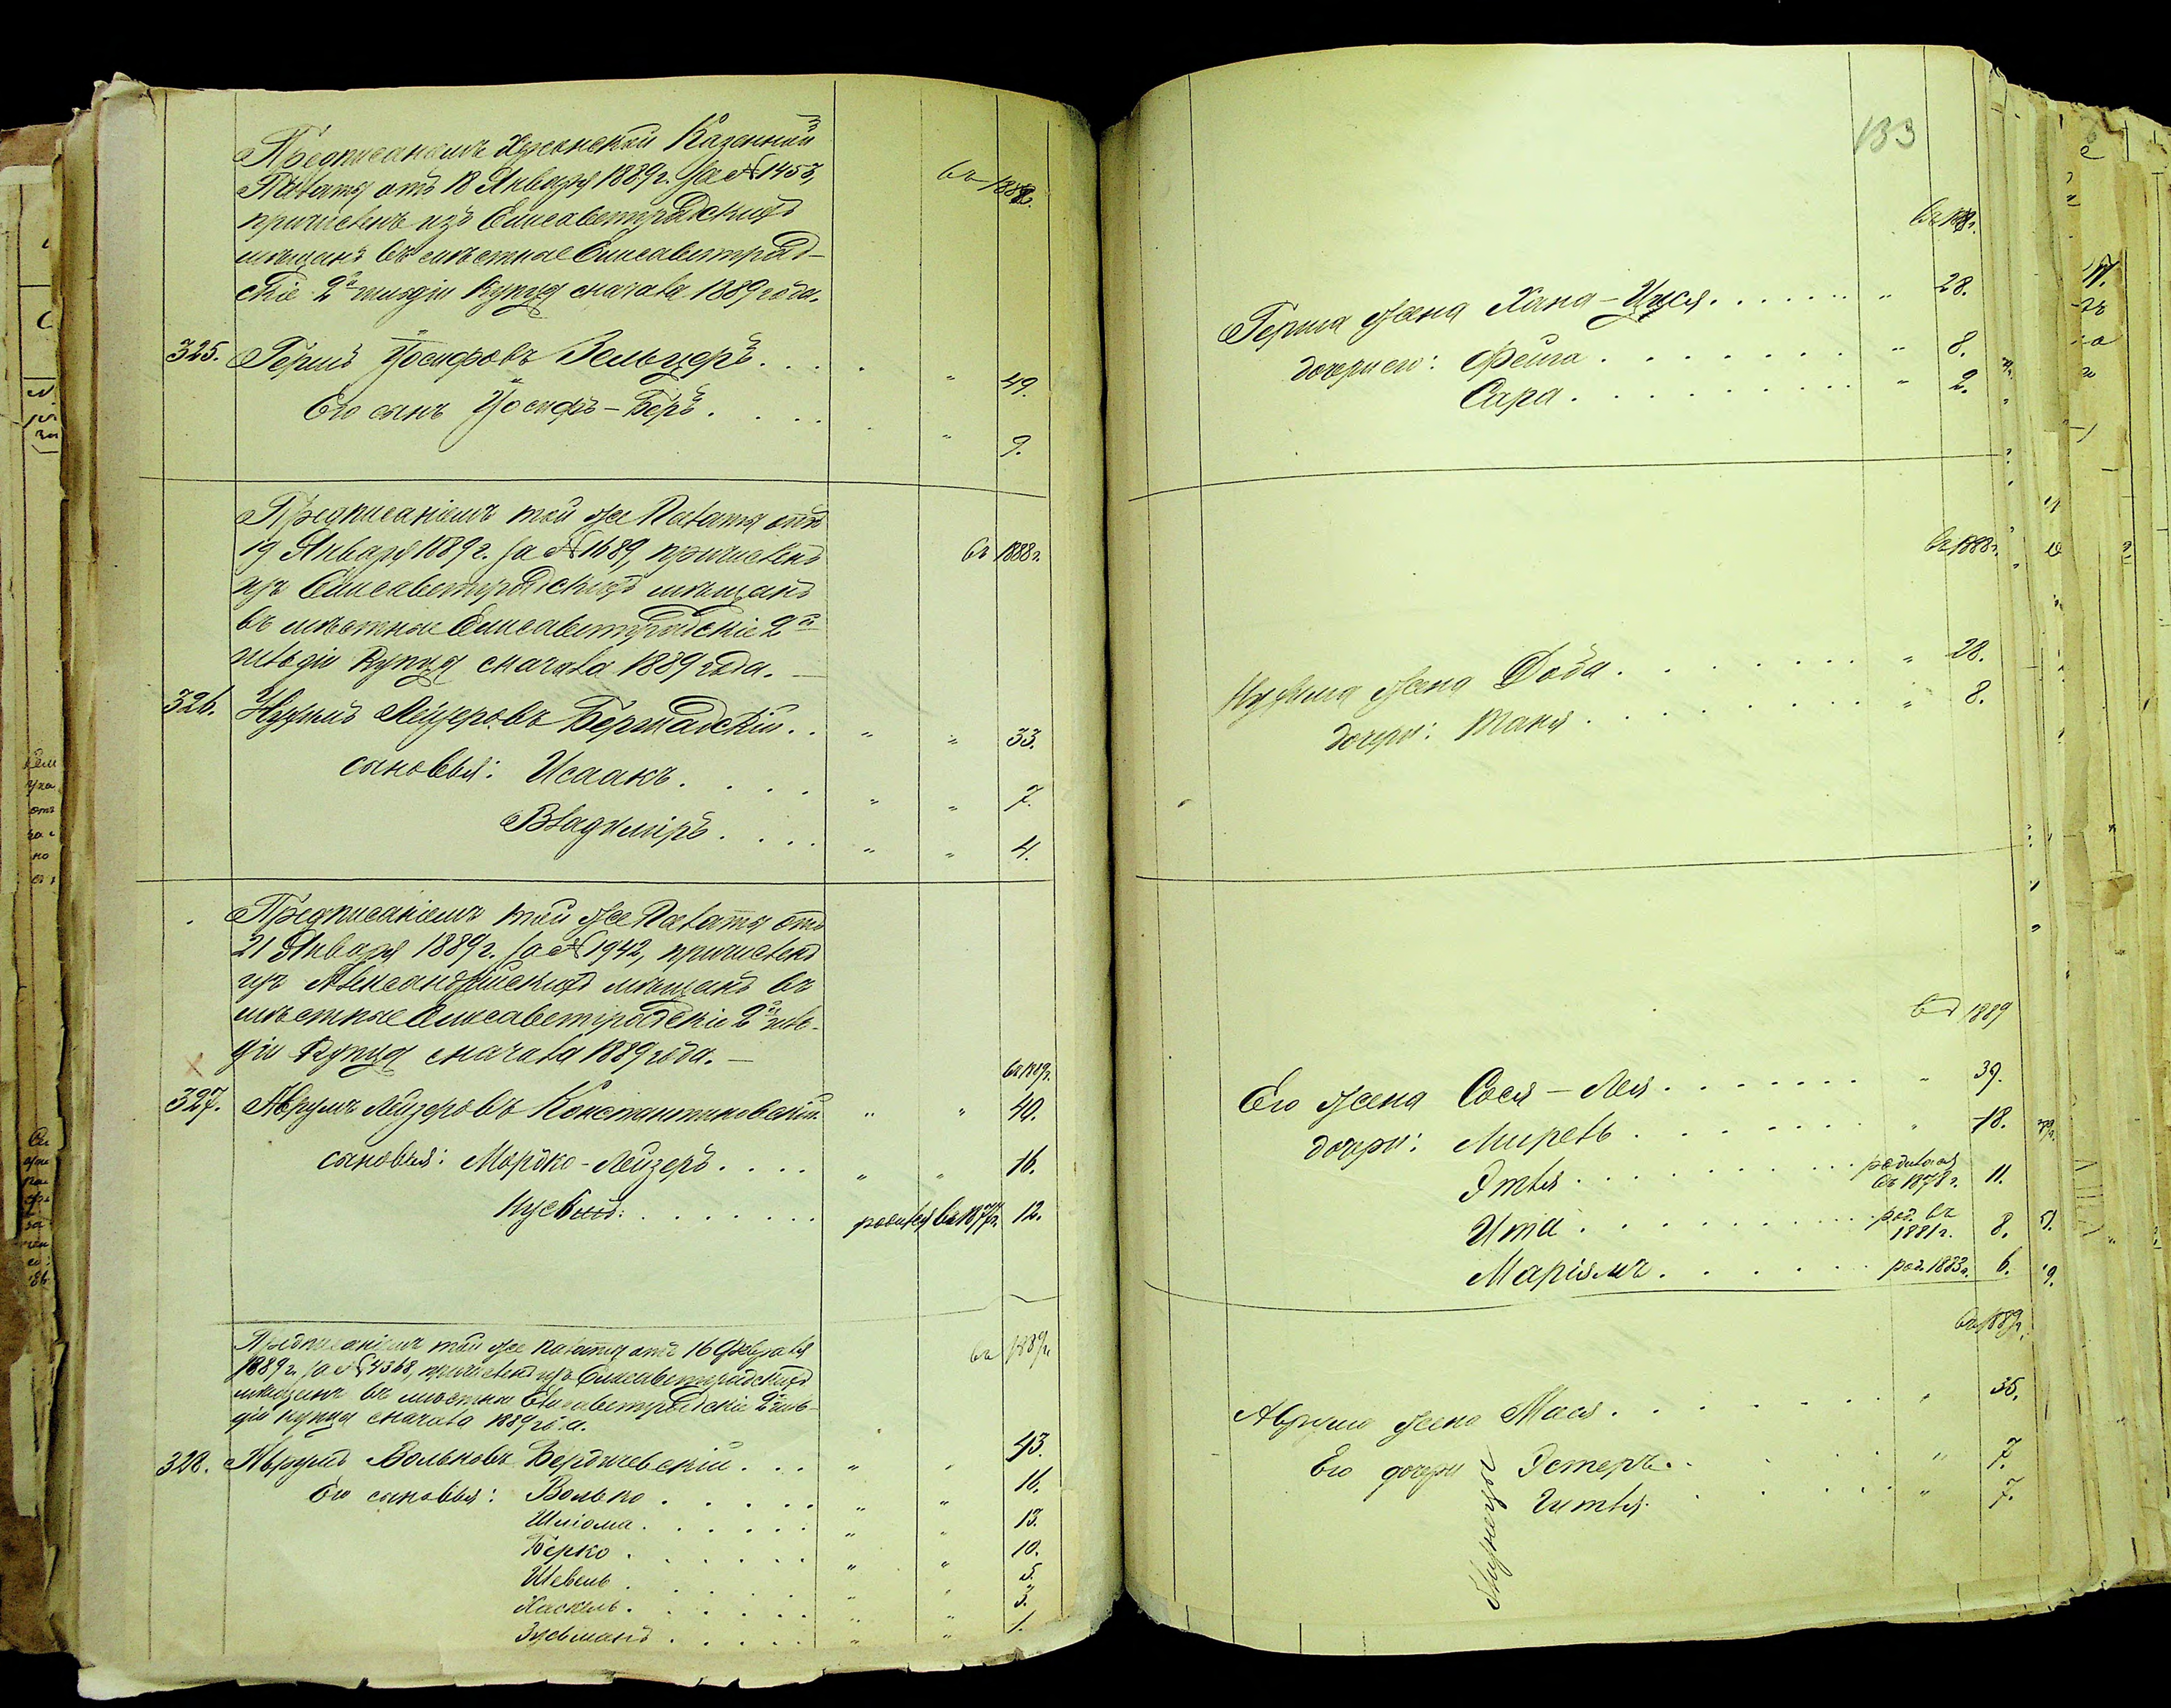 Предписаніемъ Херсонской Казенной
Палаты отъ 18 Января 1889 г. за № 1453,
причисленъ изъ Елисаветградскихъ
мѣщанъ въ мѣстные Елисаветград-
скіе 2й гильдіи Купцы сначала 1889 года.
въ 1888 г.
325. Гершъ Іосифовъ Зельцеръ . . . . " 49.
Его сынъ Іосифъ-Беръ . . . . " 9.
Предписаніемъ той же Палаты отъ
19 Января 1889 г. за № 1689, причисленъ
изъ Елисаветградскихъ мѣщанъ
въ мѣстные Елисаветградскіе 2й
гильдіи Купцы сначала 1889 года. —
въ 1888 г.
326. Нухимъ Лейзеровъ Бершадскій . . " " 33.
сыновья: Исаакъ . . . . " " 7.
Владиміръ . . . . " " 4.
Предписаніемъ той же Палаты отъ
21 Января 1889 г. за № 1942, причисленъ
изъ Александрійскихъ мѣщанъ въ
мѣстные Елисаветградскіе 2й гиль-
діи Купцы сначала 1889 года. —
въ 1889 г.
327. Аврумъ Лейзеровъ Константиновскій " " 40.
сыновья: Мордко-Лейзеръ . . . . " " 16.
родился въ 1877 г. 12.
Предписаніемъ той же Палаты отъ 16 Февраля
1889 г. за № 4368, причисленъ изъ Елисаветградскихъ
мѣщанъ въ мѣстные Елисаветградскіе 2й гиль-
діи купцы сначала 1889 года.
въ 1889 г.
328. Аврумъ Вольковъ Бердичевскій . . . " " 43.
Его сыновья: Волько . . . . . " " 16.
Шлiома . . . . . . " " 13.
Берко . . . . . . " " 10.
Шевель . . . . . . " " 5.
Хаскель . . . . . . " " 3.
Зусьманъ . . . . . " " 1.
133
въ 1888 г.
Герша жена Хана-Цися . . . . . . . " 28.
дочери его: Фейга . . . . . . . " 8.
Сара . . . . . . . . " 2.
въ 1888 г.
Нухима жена Доба . . . . . . . " 28.
дочери: Маня . . . . . . . . " 8.
въ 1889
Его жена Сося-Лея . . . . . . . " 39.
дочери: Мирель . . . . . . . " 18.
Этля . . . . . . . . родилась въ 1878 г. 11.
Ита . . . . . . . . . род. въ 1881 г. 8.
Маріямъ . . . . . . род. 1883 г. 6.
въ 1889 г.
Аврума жена Мася . . . . . . . " 35.
Его дочери Эстеръ . . . . . " 7.
Гитля . . . . . " 7.
близнецы